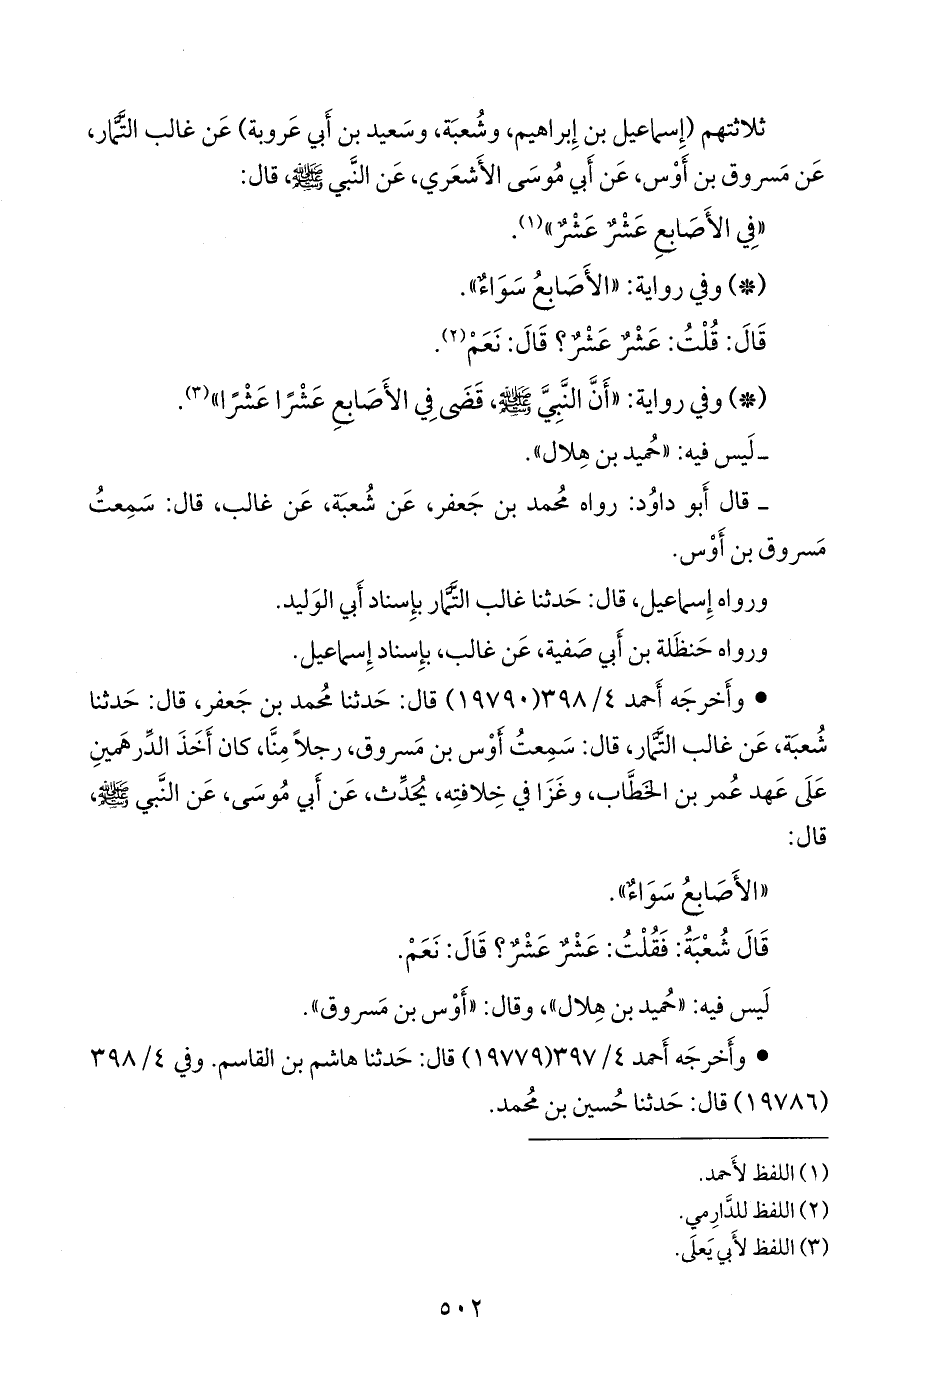 ثلاثتهم (إِسماعيل بن إِبراهيم، وشُعبَة، وسَعيد بن أَبي عَروبة) عَن غالب التَّمار،
عَن مَسروق بن أَوْس، عَن أَبي مُوسَى الأَشعَري، عَن النَّبي ﷺ، قال:
«فِي الأَصَابِعِ عَشْرٌ عَشْرٌ»(١).
(*) وفي رواية: «الأَصَابِعُ سَوَاءٌ».
قَالَ: قُلْتُ: عَشْرٌ عَشْرٌ؟ قَالَ: نَعَمْ(٢).
(*) وفي رواية: «أَنَّ النَّبِيَّ ﷺ، قَضَى فِي الأَصَابِعِ عَشْرًا عَشْرًا»(٣).
ـ لَيس فيه: «حُميد بن هِلال».
ـ قال أَبو داوُد: رواه مُحمد بن جَعفر، عَن شُعبَة، عَن غالب، قال: سَمِعتُ
مَسروق بن أَوْس.
ورواه إِسماعيل، قال: حَدثنا غالب التَّمار بإِسناد أَبي الوَليد.
ورواه حَنظَلة بن أَبي صَفية، عَن غالب، بإِسناد إِسماعيل.
• وأَخرجَه أَحمد ٤/ ٣٩٨(١٩٧٩٠) قال: حَدثنا مُحمد بن جَعفر، قال: حَدثنا
شُعبَة، عَن غالب التَّمار، قال: سَمِعتُ أَوْس بن مَسروق، رجلاً مِنَّا، كان أَخَذَ الدِّرهَمينِ
عَلَى عَهد عُمر بن الخَطَّاب، وغَزَا في خِلافتِه، يُحَدِّث، عَن أَبي مُوسَى، عَن النَّبي ﷺ،
قال:
«الأَصَابِعُ سَوَاءٌ».
قَالَ شُعْبَةُ: فَقُلْتُ: عَشْرٌ عَشْرٌ؟ قَالَ: نَعَمْ.
لَيس فيه: «حُميد بن هِلال»، وقال: «أَوْس بن مَسروق».
• وأَخرجَه أَحمد ٤/ ٣٩٧(١٩٧٧٩) قال: حَدثنا هاشم بن القاسم. وفي ٤/ ٣٩٨
(١٩٧٨٦) قال: حَدثنا حُسين بن مُحمد.
(١) اللفظ لأَحمد.
(٢) اللفظ للدَّارِمي.
(٣) اللفظ لأَبي يَعلَى.
٥٠٢